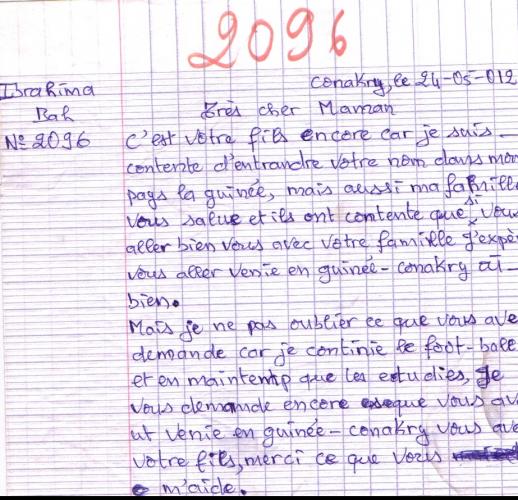 2096
Ibrahima
Bah
Nº 2096
Conakry, le 24-05-012
très cher Maman
C'est votre fils encore car je suis
contente d'entrandre votre nom dans mon
pays la guinée, mais aussi ma familli
vous salue et ils ont contente que si vou
aller bien vous avec votre famille J'expè
vous aller venie en guinée-conakry
bien.
Mais je ne pas oublier ce que vous ave
demande car je continie le foot-balle
et en maintemp que les estudies, Je
vous demande encore que vous av
ut venie en guinée-conakry vous ave
votre fils, merci ce que vous
m'aide.